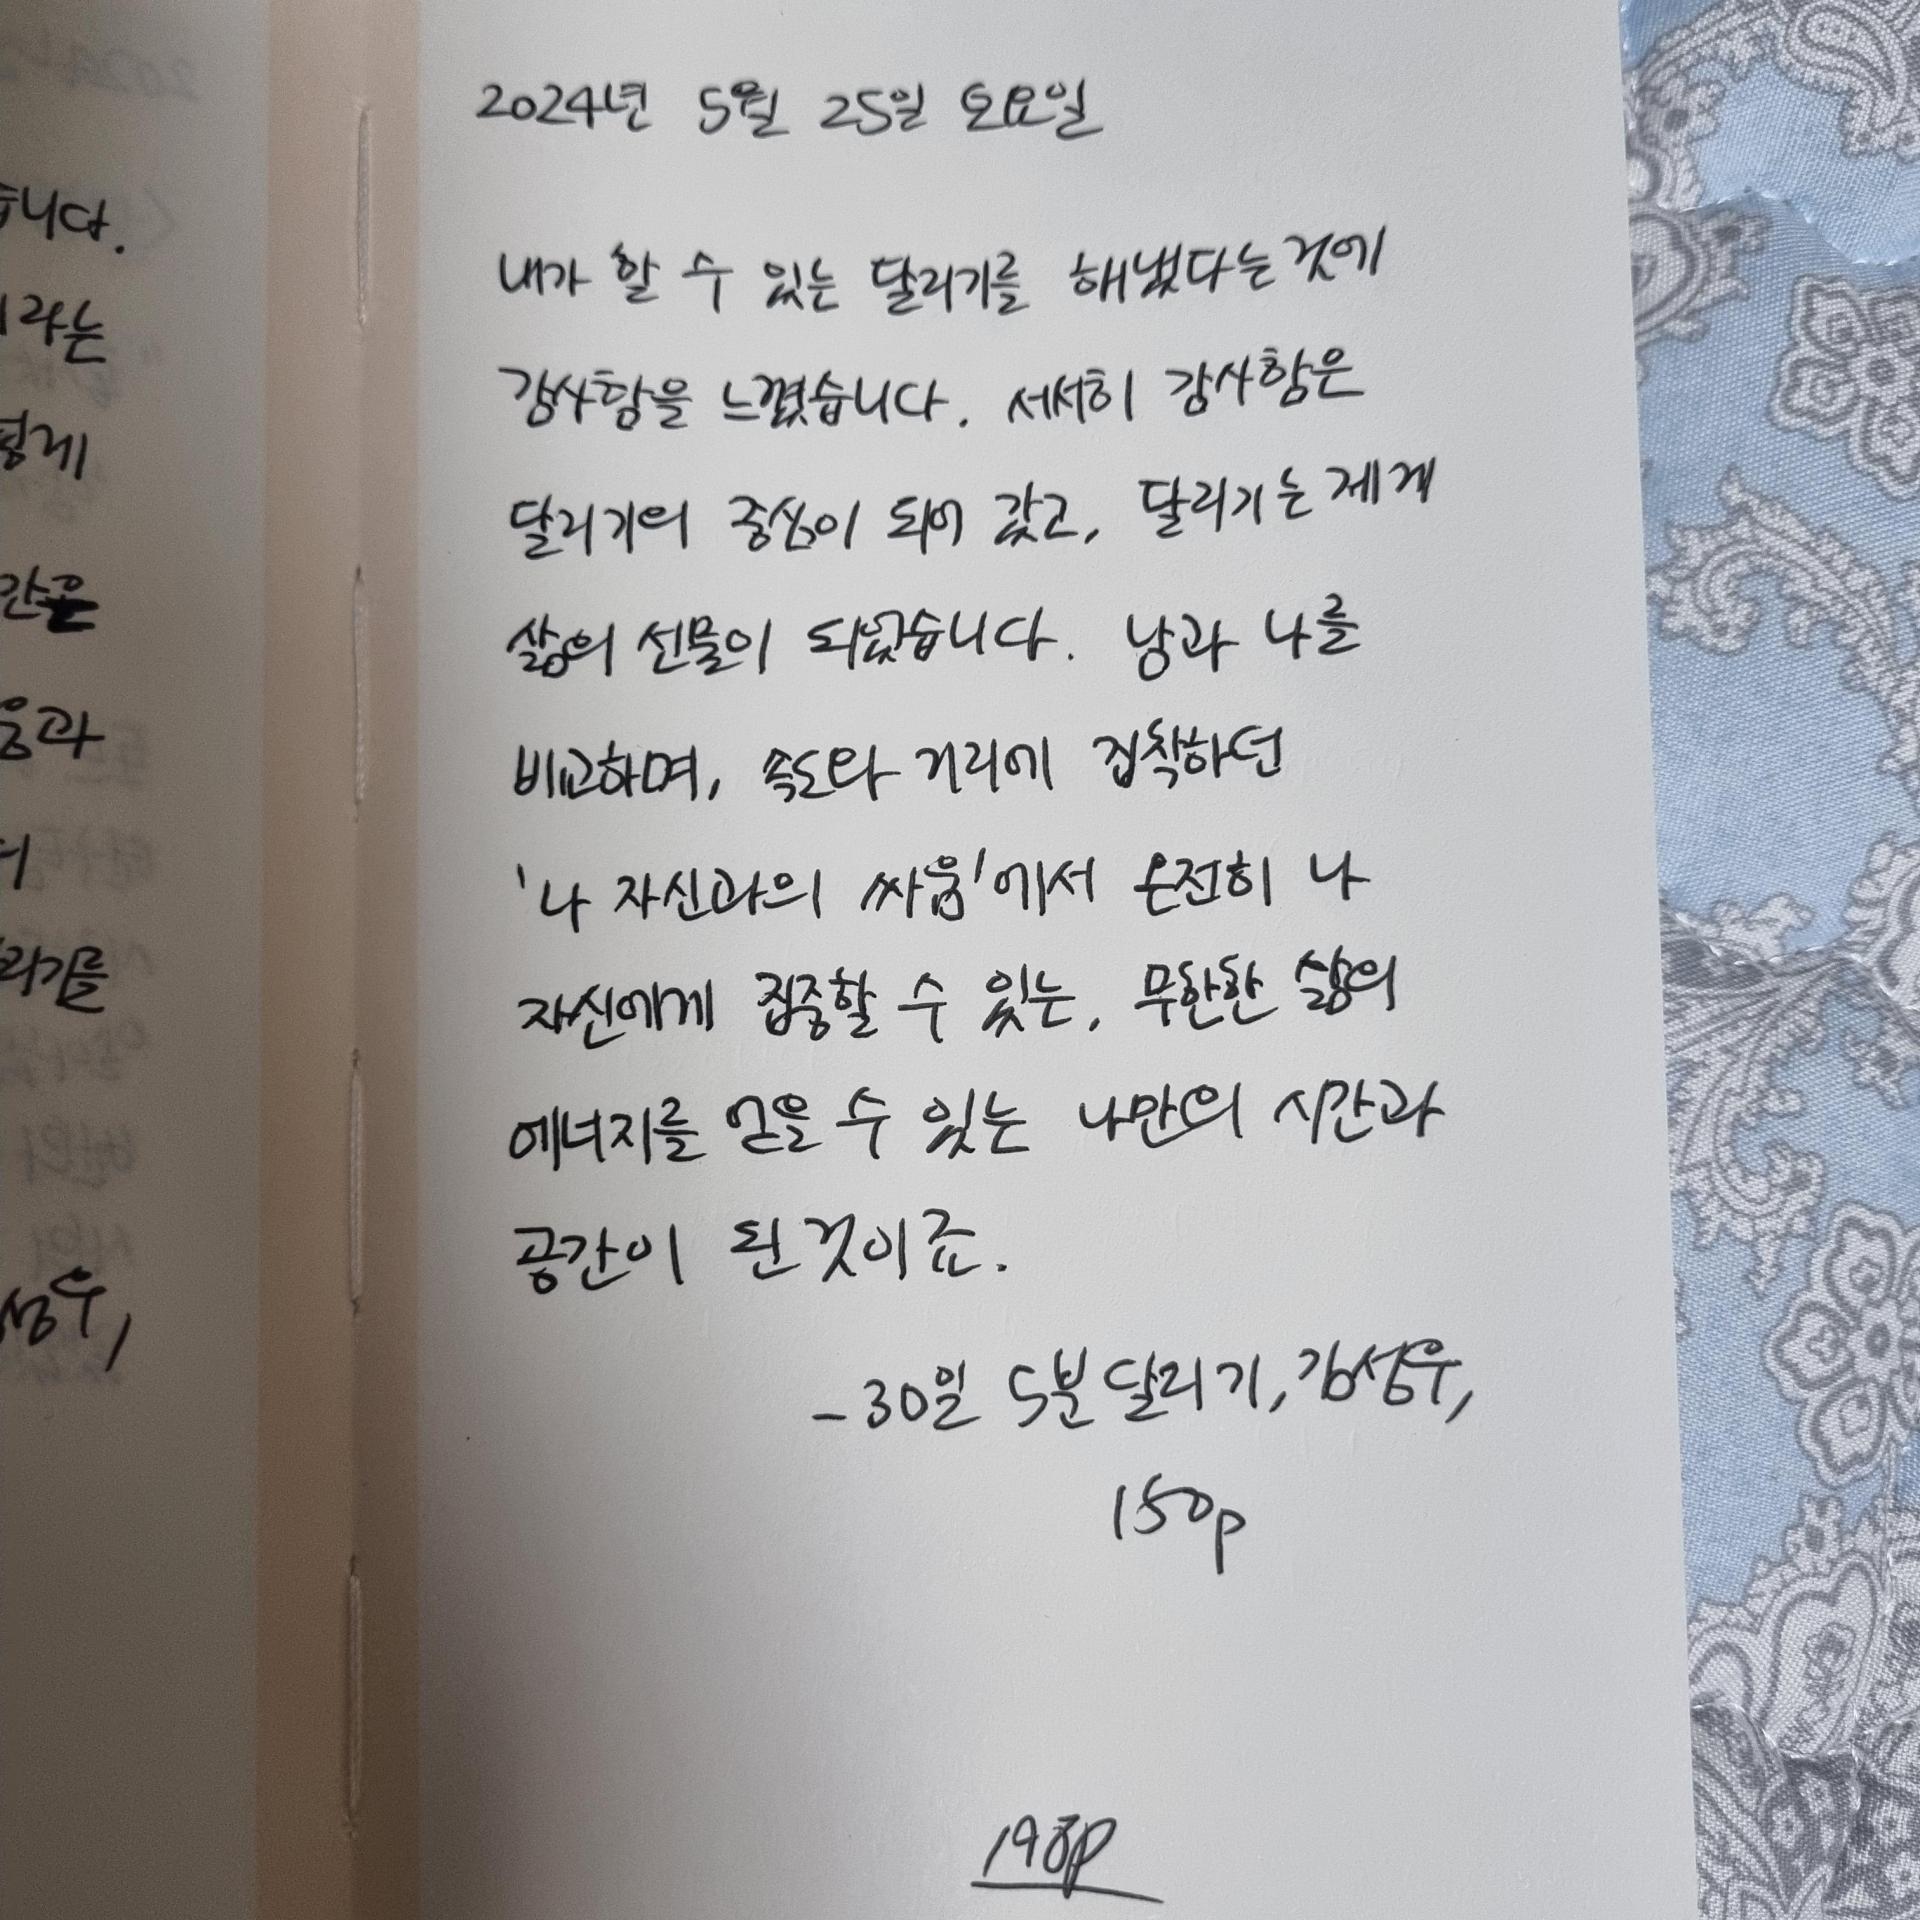 2024년 5월 25일 토요일
내가 할 수 있는 달리기를 해냈다는 것에
감사함을 느꼈습니다. 서서히 감사함은
달리기의 중심이 되어 갔고, 달리기는 제게
삶의 선물이 되었습니다. 남과 나를
비교하며, 속도와 거리에 집착하던
'나 자신과의 싸움'에서 온전히 나
자신에게 집중할 수 있는, 무한한 삶의
에너지를 얻을 수 있는 나만의 시간과
공간이 된 것이죠.
- 30일 5분 달리기, 김성우,
150p
198p